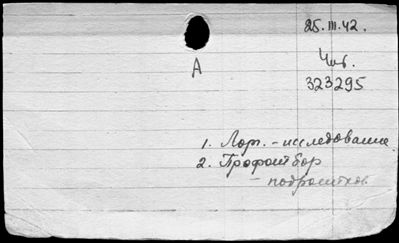 25.III.42.
Чит.
323295
А
1. Лор. - исследование
2. Профотбор
- подростков